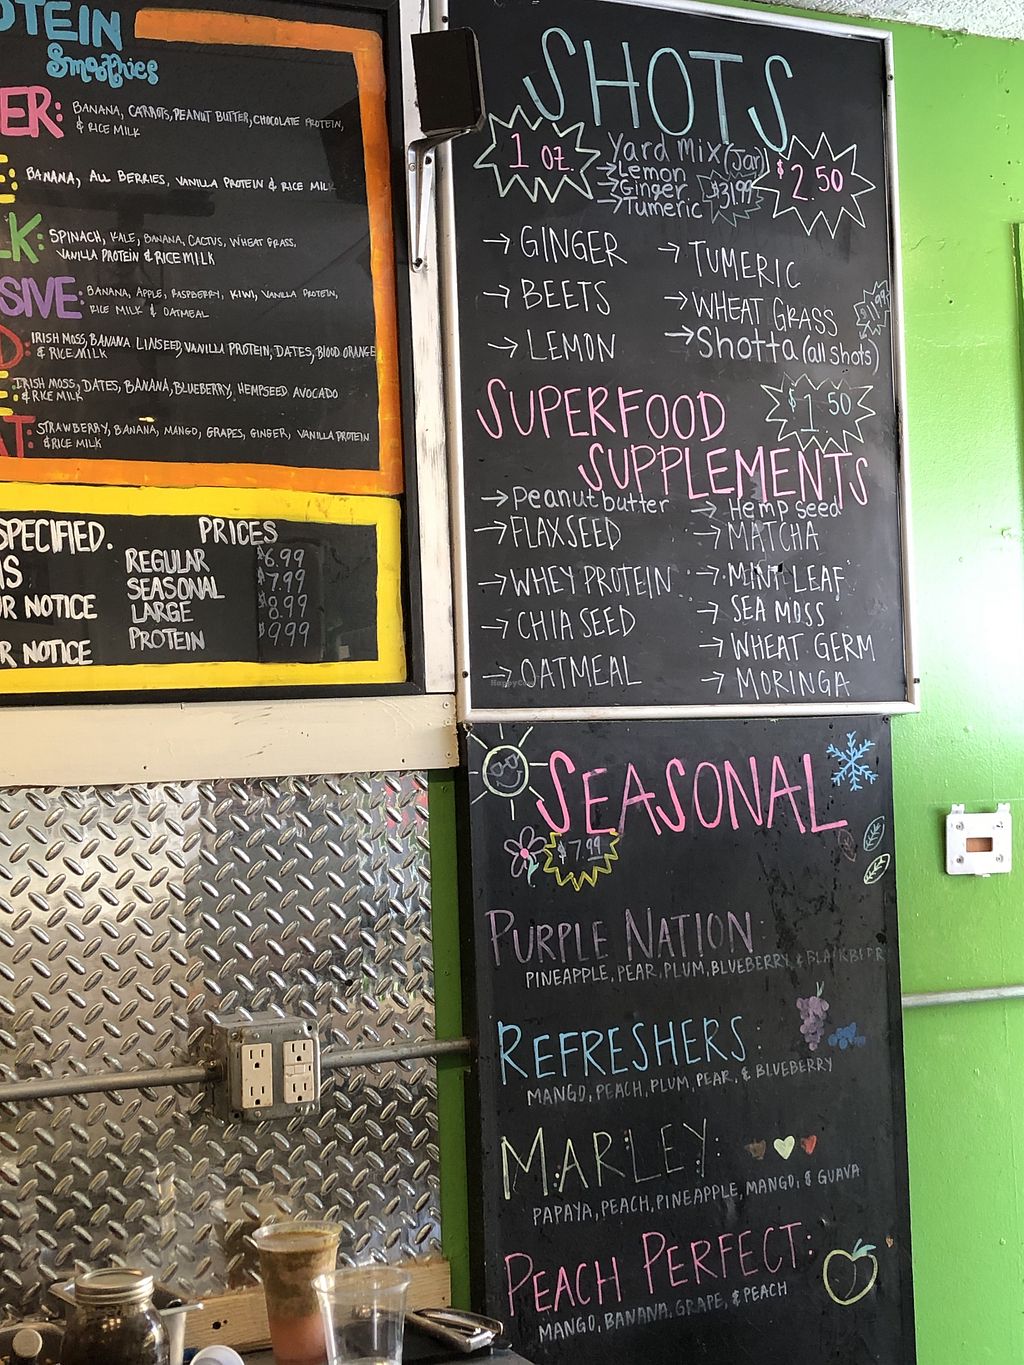 OTEIN
Smoothies
ER: BANANA, CARROTS, PEANUT BUTTER, CHOCOLATE PROTEIN,
& RICE MILK
E: BANANA, ALL BERRIES, VANILLA PROTEIN & RICE MILK
LK: SPINACH, KALE, BANANA, CACTUS, WHEAT GRASS,
VANILLA PROTEIN & RICE MILK
SIVE: BANANA, APPLE, RASPBERRY, KIWI, VANILLA PROTEIN,
RICE MILK & OATMEAL
D: IRISH MOSS, BANANA LINSEED, VANILLA PROTEIN, DATES, BLOOD ORANGE
& RICE MILK
E: IRISH MOSS, DATES, BANANA, BLUEBERRY, HEMPSEED AVOCADO
& RICE MILK
AT: STRAWBERRY, BANANA, MANGO, GRAPES, GINGER, VANILLA PROTEIN
& RICE MILK
SPECIFIED.
NS
UR NOTICE
R NOTICE
PRICES
REGULAR $6.99
SEASONAL $7.99
LARGE $8.99
PROTEIN $9.99
SHOTS
1 OZ.
Yard Mix (Jar)
→Lemon
→Ginger
→Tumeric
$31.99
$2.50
→ GINGER
→ BEETS
→ LEMON
→ TUMERIC
→ WHEAT GRASS
→ Shotta (all shots)
$11.99
SUPERFOOD
SUPPLEMENTS
$1.50
→ Peanut butter
→ FLAXSEED
→ WHEY PROTEIN
→ CHIA SEED
→ OATMEAL
→ Hemp seed
→ MATCHA
→ MINT LEAF
→ SEA MOSS
→ WHEAT GERM
→ MORINGA
SEASONAL
$7.99
PURPLE NATION:
PINEAPPLE, PEAR, PLUM, BLUEBERRY & BLACKBERR
REFRESHERS:
MANGO, PEACH, PLUM, PEAR, & BLUEBERRY
MARLEY:
PAPAYA, PEACH, PINEAPPLE, MANGO, & GUAVA
PEACH PERFECT:
MANGO, BANANA, GRAPE, & PEACH